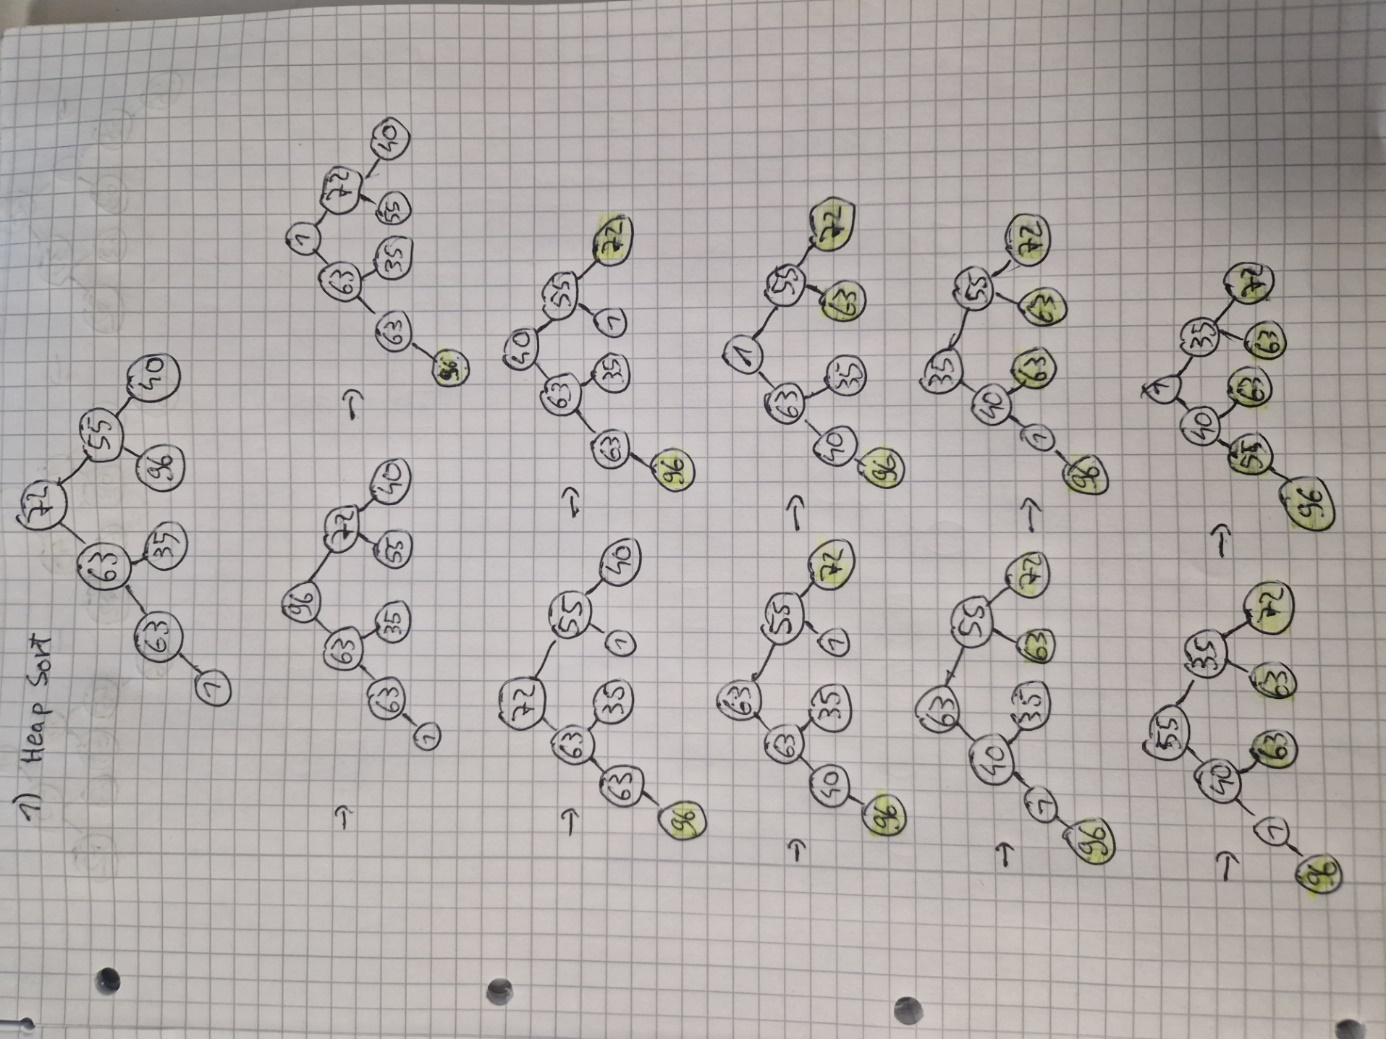 1) Heap Sort
72
63 55
63 35 96 40
1
→
96
63 72
63 35 55 40
1
→
1
63 72
63 35 55 40
96
→
72
63 55
63 35 1 40
96
→
40
63 55
63 35 1 72
96
→
63
63 55
40 35 1 72
96
→
1
63 55
40 35 63 72
96
→
63
40 55
1 35 63 72
96
→
35
40 55
1 63 63 72
96
→
55
40 35
1 63 63 72
96
→
1
40 35
55 63 63 72
96